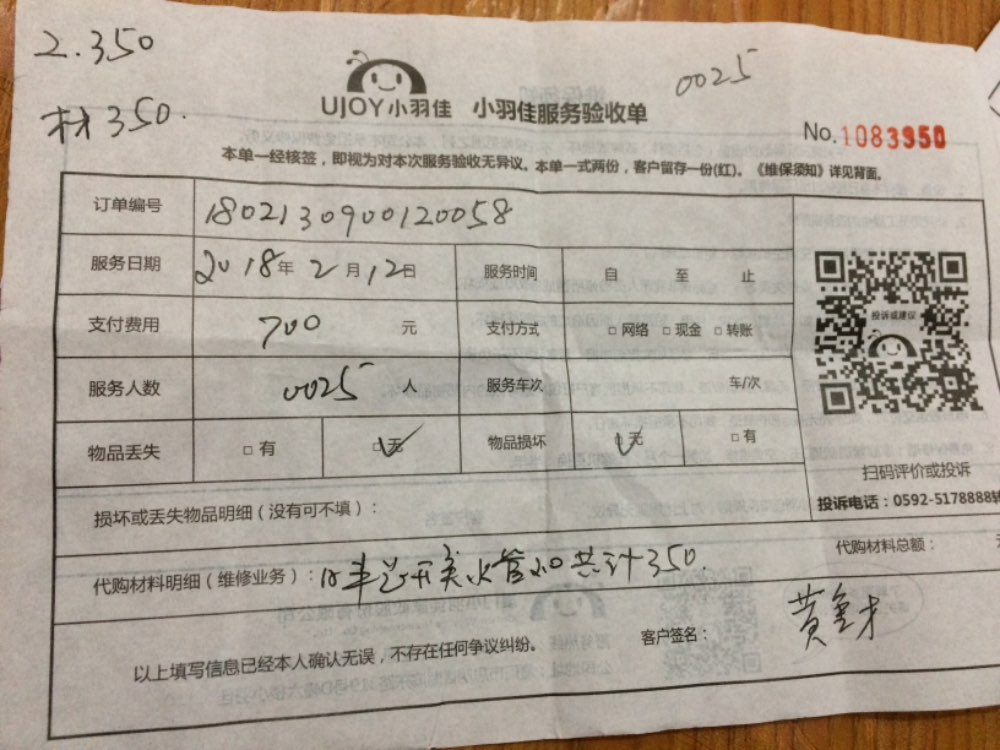 2.350
材350.
0025
UJOY小羽佳 小羽佳服务验收单
No.1083950
本单一经核签，即视为对本次服务验收无异议。本单一式两份，客户留存一份(红)。《维保须知》详见背面。
订单编号 180213090012 0058
服务日期 2018年2月12日 服务时间 自 至 止
支付费用 700 元 支付方式 □网络 □现金 □转账
服务人数 0025 人 服务车次 车/次
物品丢失 □有 □无 物品损坏 □无 □有
投诉或建议
扫码评价或投诉
投诉电话：0592-5178888转
损坏或丢失物品明细（没有可不填）：
代购材料明细（维修业务）： 开关水管 共计350.
代购材料总额：
以上填写信息已经本人确认无误，不存在任何争议纠纷。
客户签名： 黄金才